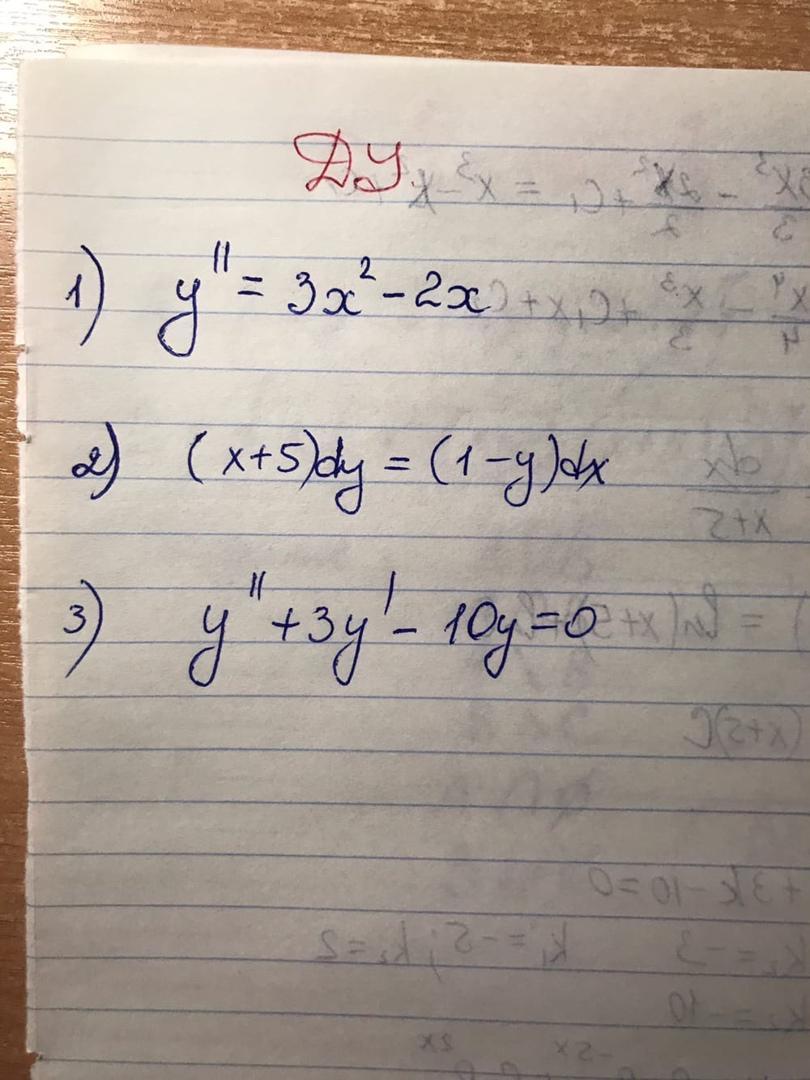 ДУ.
1) y'' = 3x² - 2x
2) (x+5)dy = (1-y)dx
3) y'' + 3y' - 10y = 0